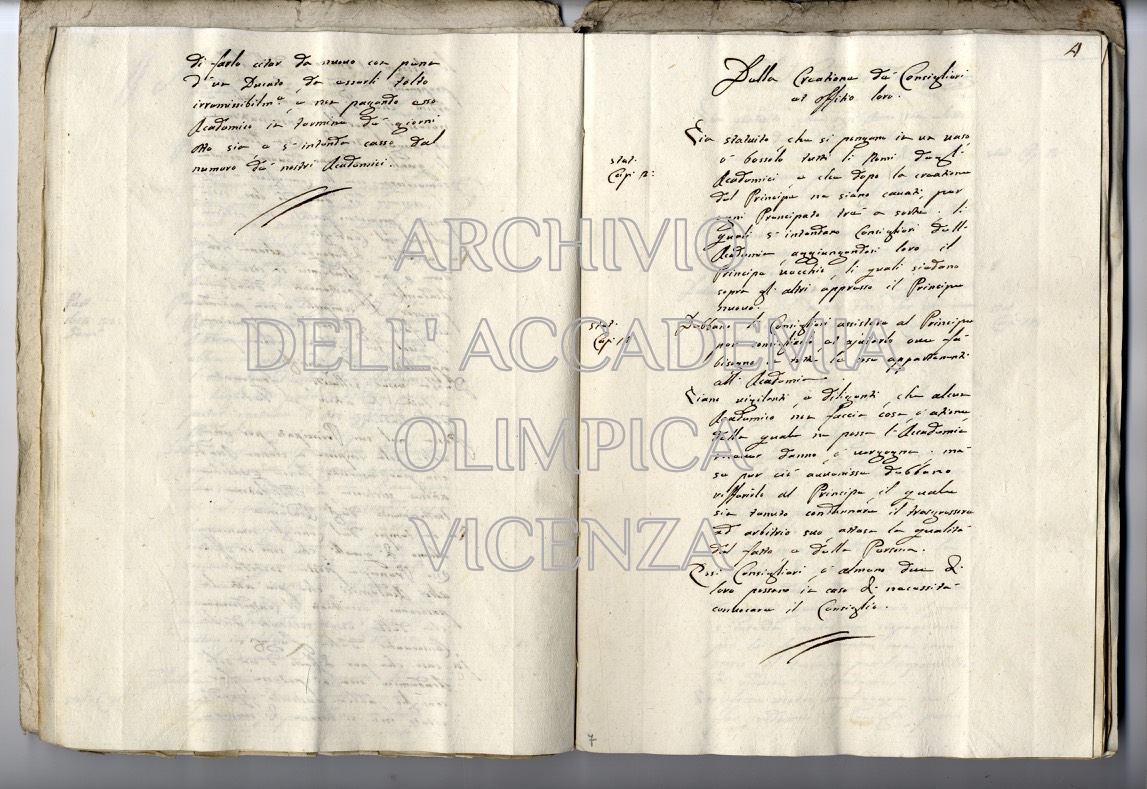 di farlo citar da nuovo con pena
d'un Ducato da esserli tolto
irremissibilm.e, e non pagando esso
Academico in termine de giorni
otto sia e s'intenda casso dal
numero de nostri Academici.
4
Della Creatione de Consiglieri
et offitio loro.
Sia statuito, che si pongano in un vaso
stat:
Cap: 12:
ò bossolo tutti li Nomi degl'
Academici, e che dopo la creatione
del Principe ne siano cavati, per
ogni Principato tre a sorte. li
quali s'intendano Consiglieri dell'
Academia, aggiungendosi loro il
Principe vecchio, li quali siedano
sopra gl'altri appresso il Principe
nuovo.
stat:
Cap:
Debbano li Consiglieri assistere al Principe
per consigliarlo, et ajutarlo ove fà
bisogno in tutte le cose appartenenti
all'Academia.
Siano vigilanti, e diligenti, che alcun
Academico non faccia cosa, ò atione
della quale ne possa l'Academia
ricever danno, ò vergogna. mà
se pur ciò avvenisse debbano
rifferirlo al Principe, il quale
sia tenuto condannare il trasgressore
ad arbitrio suo, attesa la qualità
del fatto, e della Persona.
Essi Consiglieri, ò almeno due di
loro possano in caso di necessità
convocare il Consiglio.
7
ARCHIVIO
DELL'ACCADEMIA
OLIMPICA
VICENZA